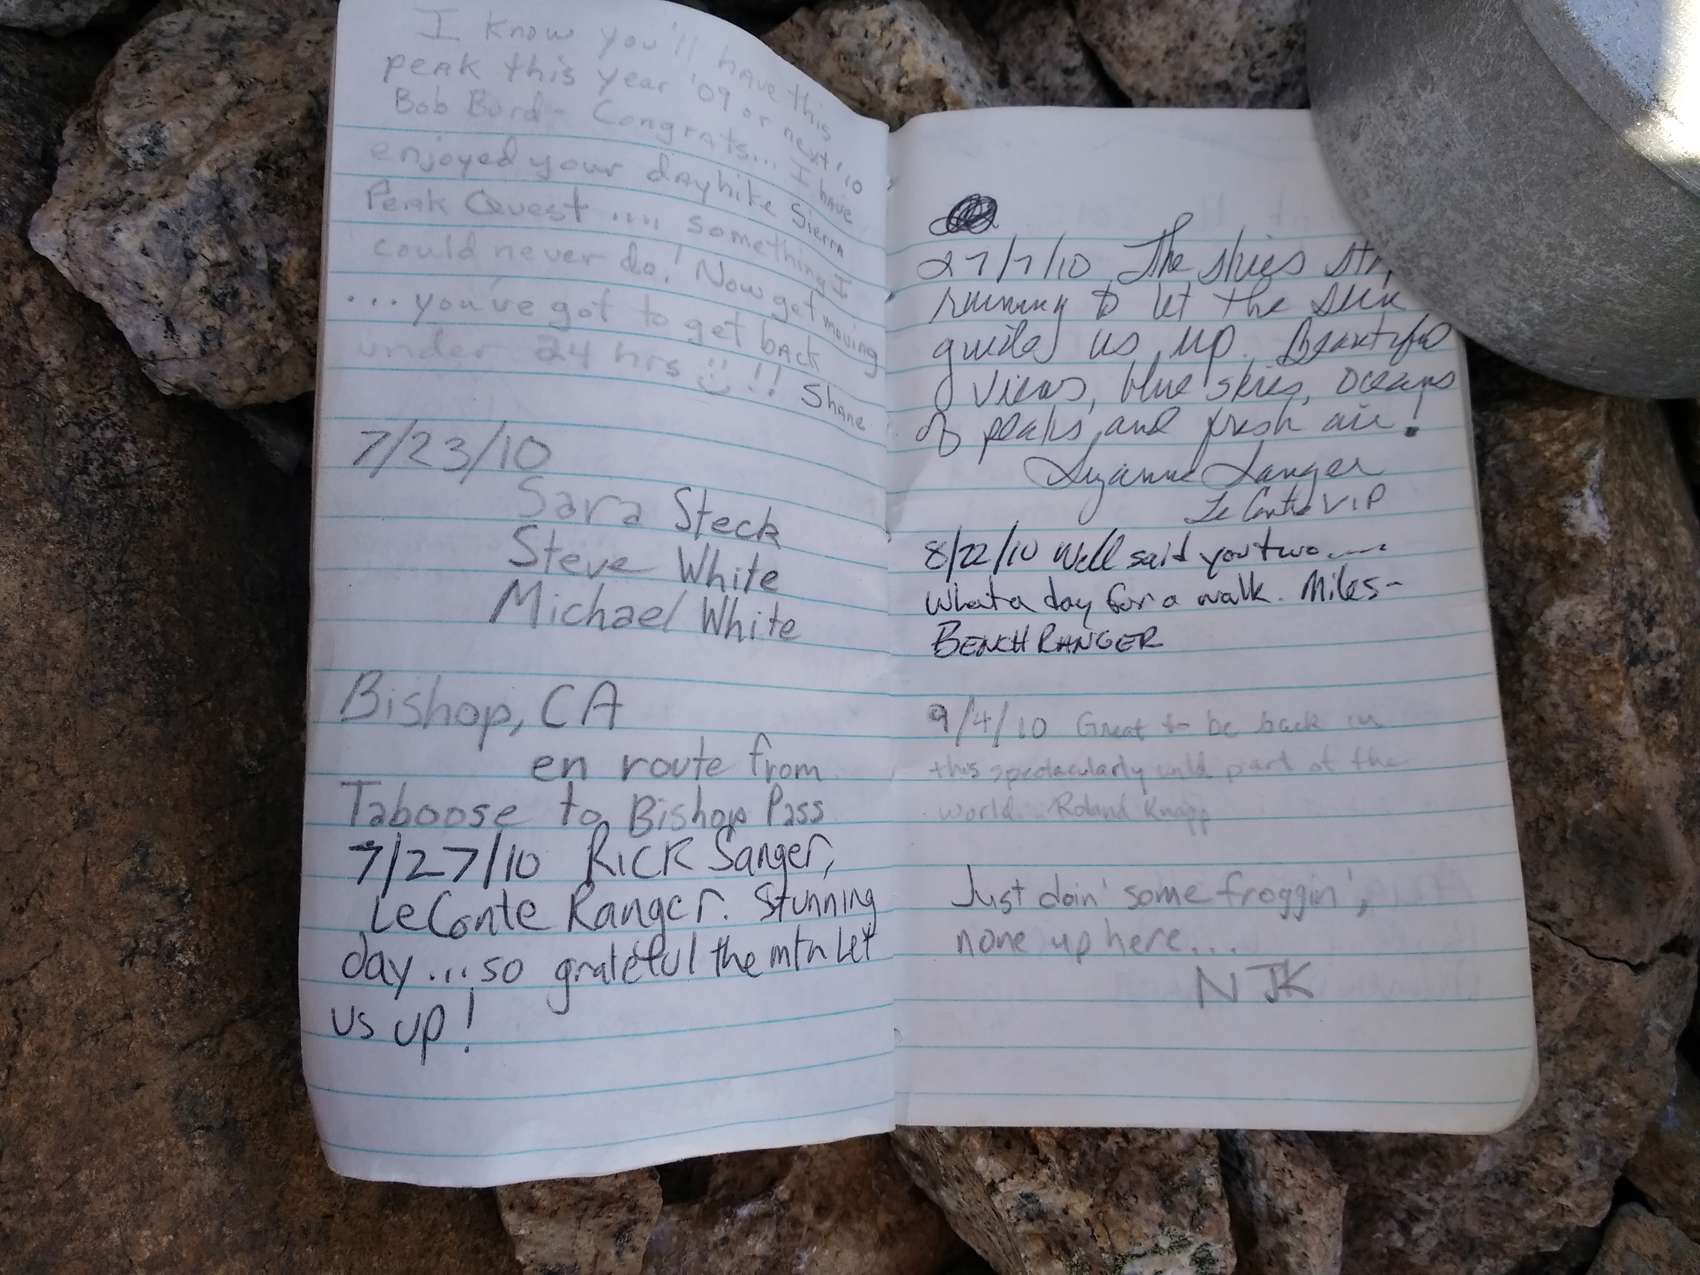 I know you'll have this
peak this year '09 or next '10
Bob Burd - Congrats... I have
enjoyed your dayhike Sierra
Peak Quest ..... something I
could never do! Now get moving
... you've got to get back
under 24 hrs !! Shane
7/23/10
Sara Steck
Steve White
Michael White
Bishop, CA
en route from
Taboose to Bishop Pass
7/27/10 Rick Sanger,
LeConte Ranger. Stunning
day....so grateful the mtn let
us up!
27/7/10 The skies
running to let the sun
guide us up. Beautiful
views, blue skies, oceans
of peaks, and fresh air!
Suzanne Sanger
LeConte VIP
8/22/10 Well said you two.....
what a day for a walk. Miles-
BENCH RANGER
9/4/10 Great to be back in
this spectacularly wild part of the
world. Roland Knapp
Just doin' some froggin',
none up here...
NJK